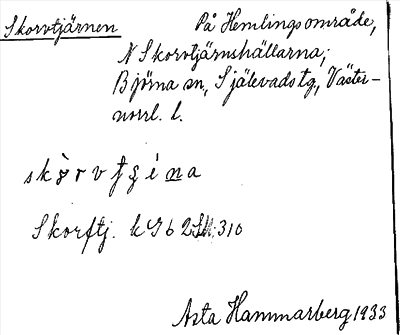 Skorvtjärnen På Hemlingsområde,
N Skorvtjärnshällarna;
Björna sn, Själevads tg., Väster-
norrl. l.
Skorftj. k 962
Asta Hammarberg 1933